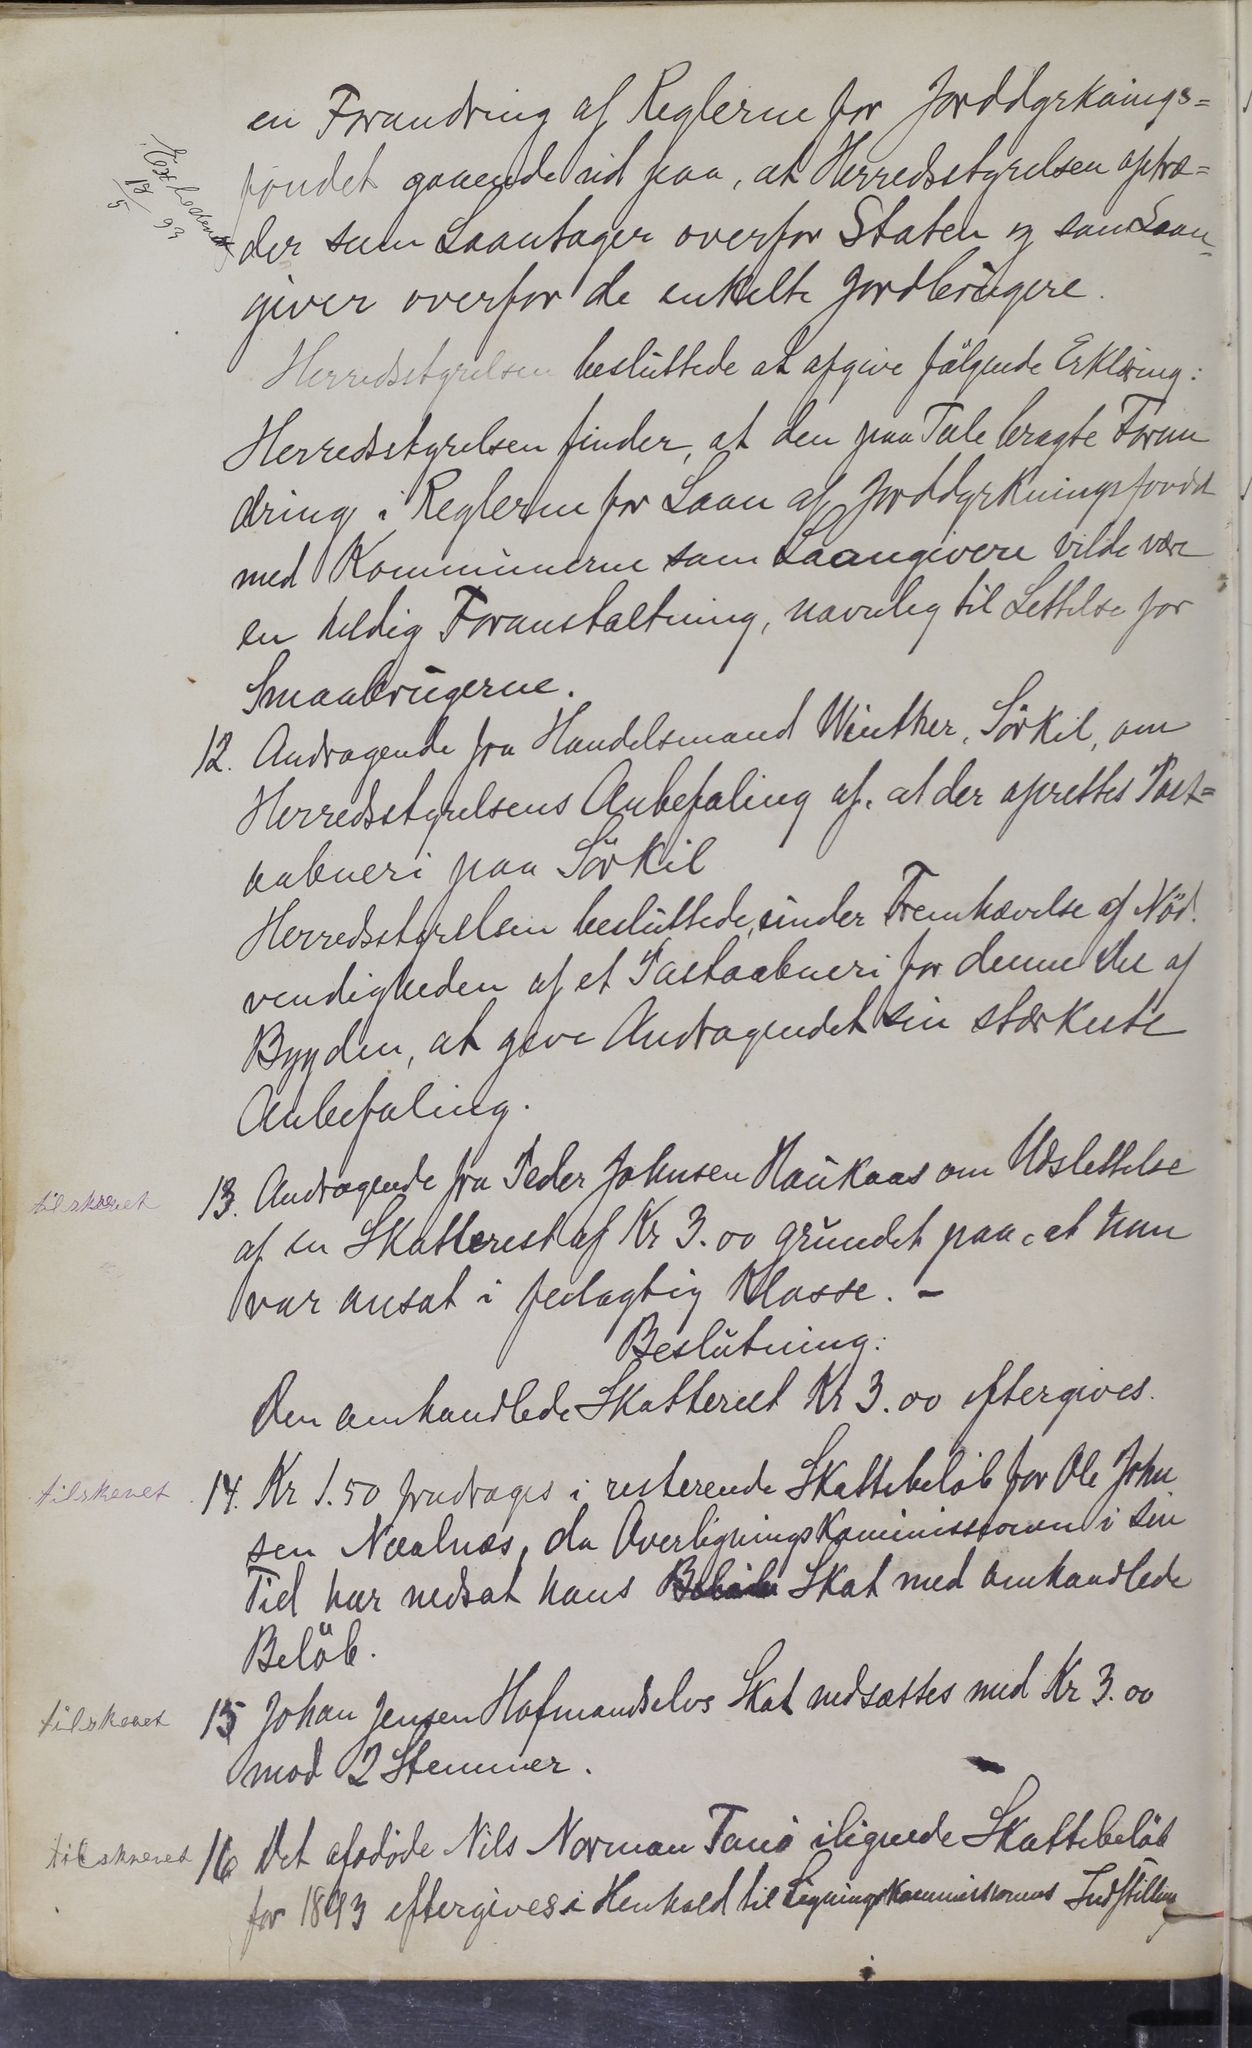 en Forandring af Reglerne for Jorddyrknings=
fondet gaaende ud paa, at Herredsstyrelsen optræ=
der som Laantager overfor Staten og som Laan-
giver overfor de enkelte Jordbrugere.
18/5 93
Herredsstyrelsen besluttede at afgive følgende Erklæring:
Herredsstyrelsen finder, at den paa Tale bragte Foran
dring i Reglerne for Laan af Jorddyrkningsfondet
med Kommunerne som Laangivere vilde være
en heldig Foranstaltning, navnlig til Lettelse for
Smaabrugerne.
12. Andragende fra Handelsmand Winther, Sörkil, om
Herredsstyrelsens Anbefaling af, at der oprettes Post=
aabneri paa Sörkil
Herredsstyrelsen besluttede, under Fremhævelse af Nöd.
vendigheden af et Postaabneri for denne Del af
Bygden, at give Andragendet sin stærkeste
Anbefaling.
tilskrevet
13. Andragende fra Peder Johnsen Haukaas om Udslettelse
af en Skatterest af Kr 3.00 grundet paa, at han
var ansat i feilagtig Klasse. –
Beslutning:
Den omhandlede Skatterest Kr 3.00 eftergives.
tilskrevet
14. Kr 1.50 fradrages i resterende Skattebelöb for Ole John
sen , da Overligningskommissionen i sin
Tid har nedsat hans Skat med omhandlede
Belöb.
tilskrevet
15 Johan Jensen Hofmandselvs Skat nedsættes med Kr 3.00
mod 2 Stemmer.
tilskrevet
16 Det afdöde Nils Norman ilignede Skattebelöb
for 1893 eftergives i Henhold til Ligningskommissionens Indstilling